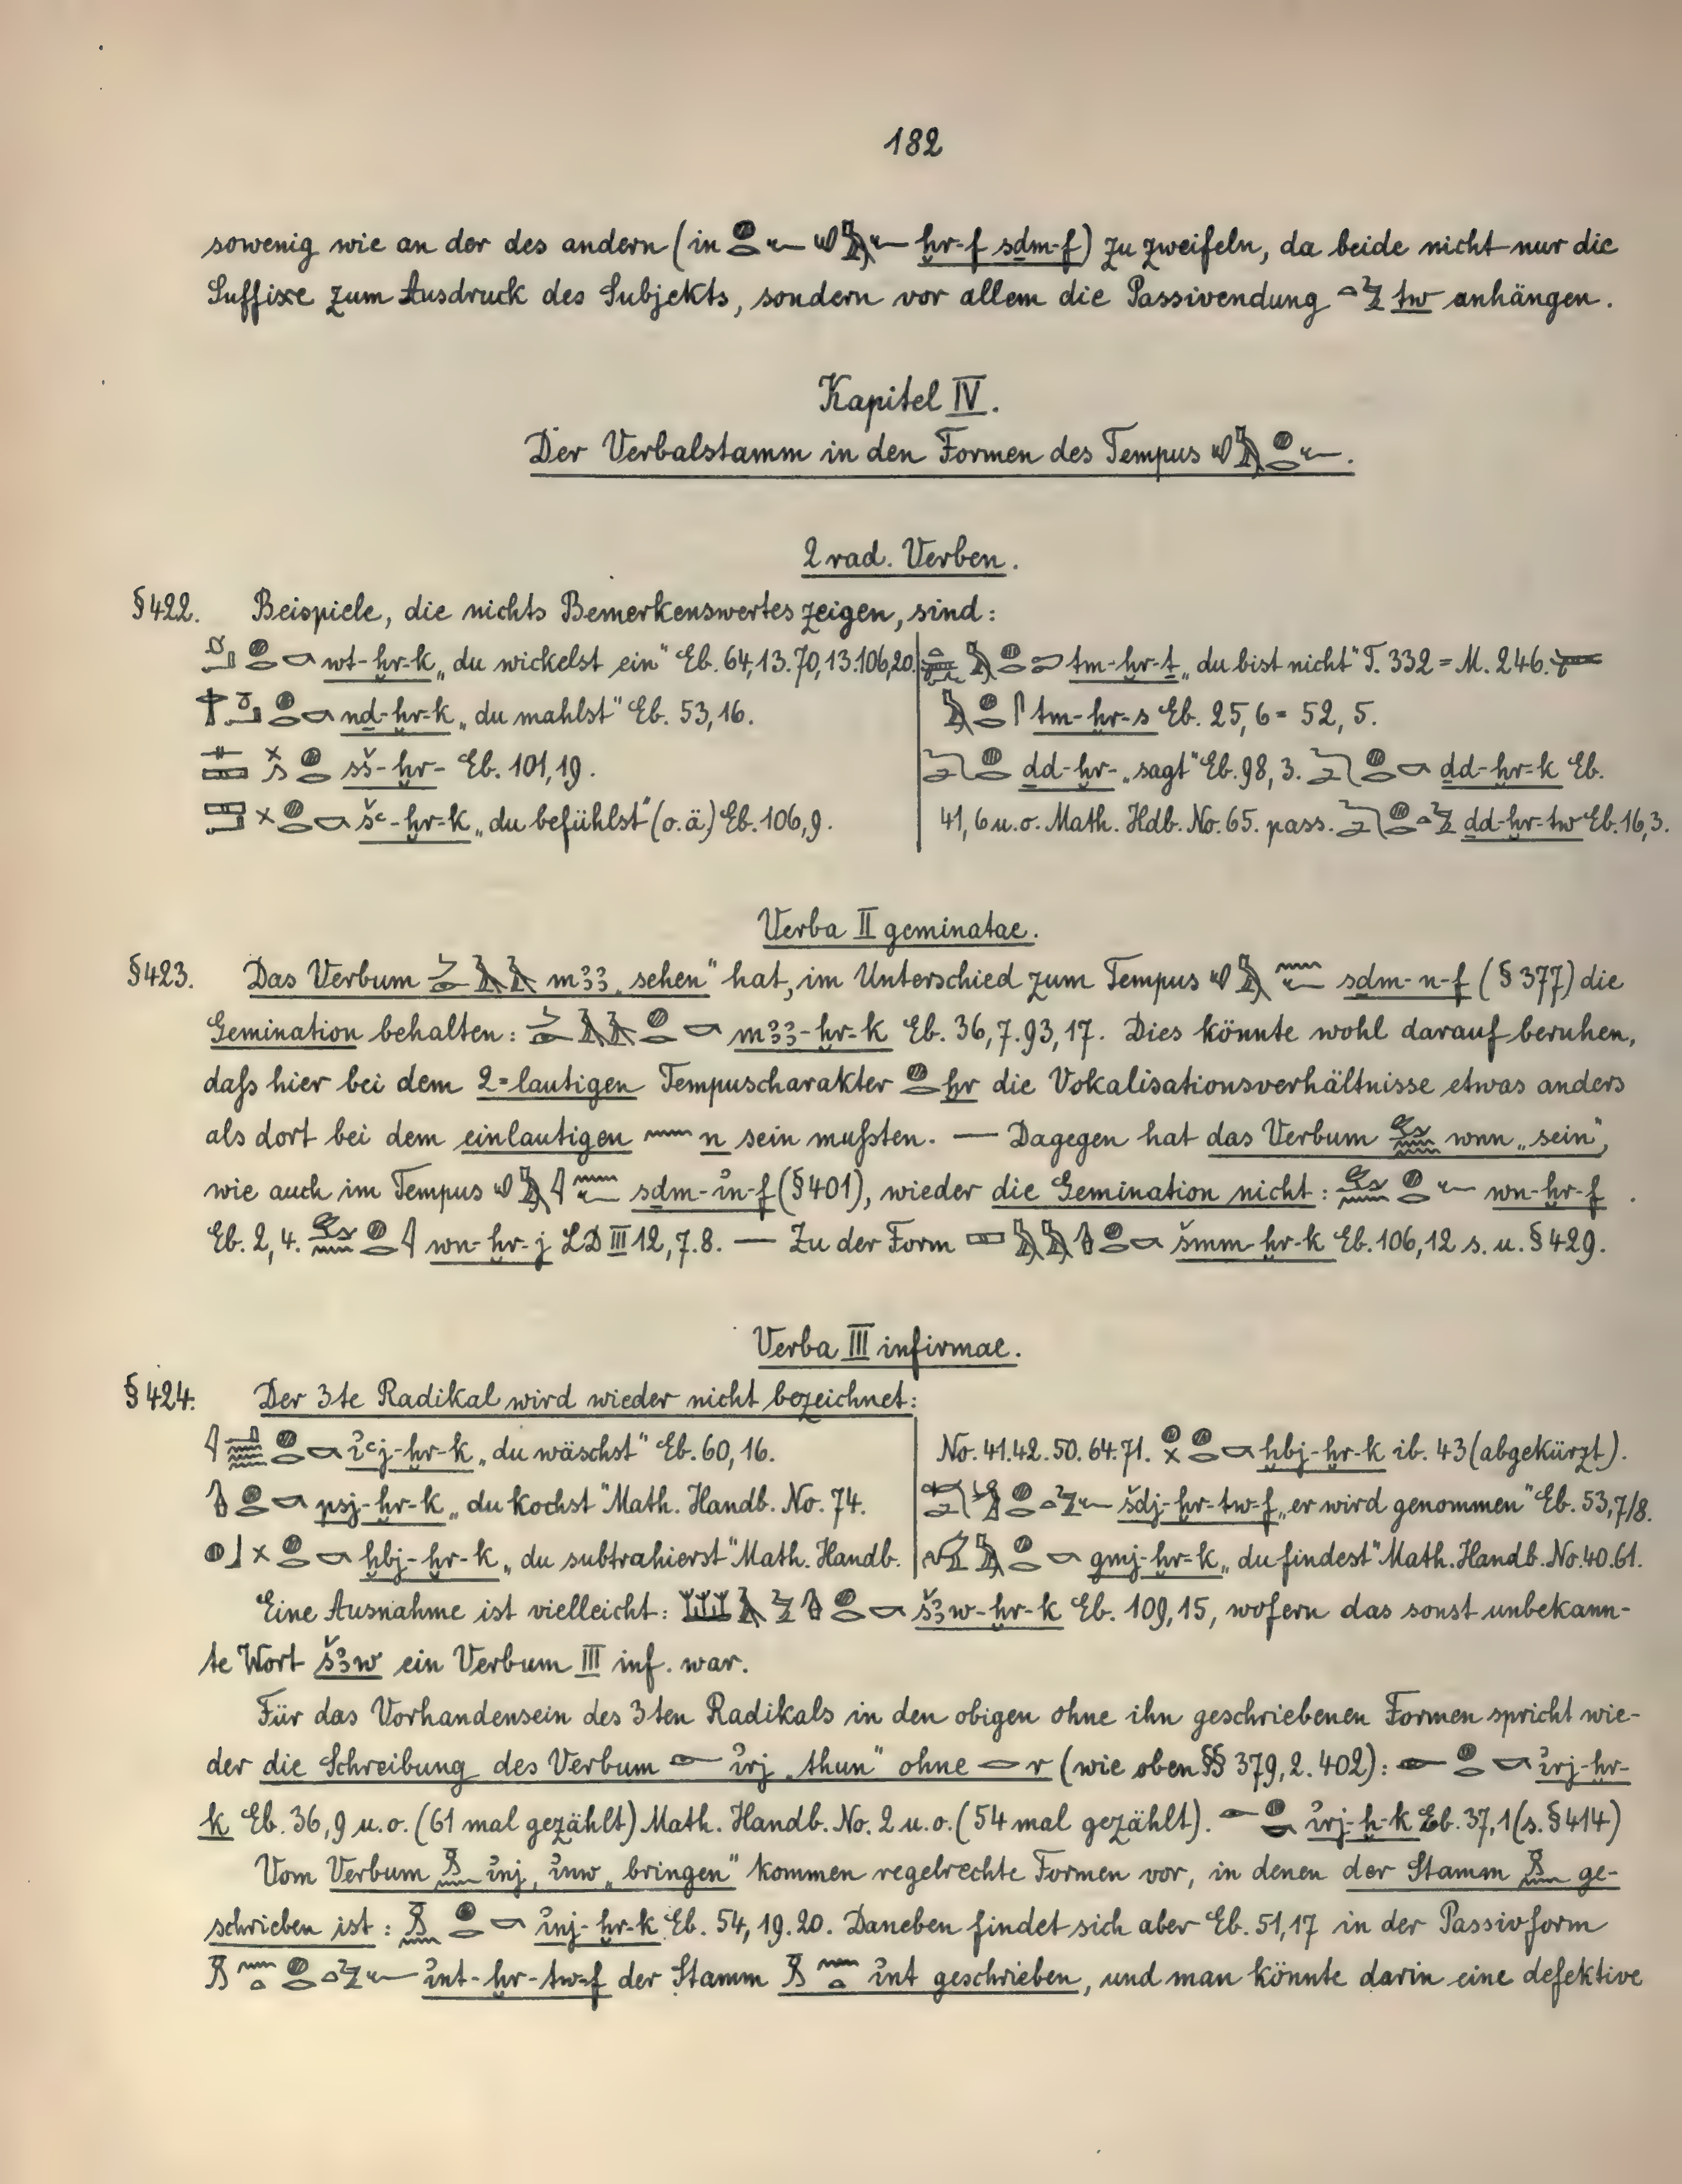 182
sowenig wie an der des andern (in ḫr-f sḏm-f) zu zweifeln, da beide nicht nur die
Suffixe zum Ausdruck des Subjekts, sondern vor allem die Passivendung tw anhängen.
Kapitel IV.
Der Verbalstamm in den Formen des Tempus
2 rad. Verben.
§ 422. Beispiele, die nichts Bemerkenswertes zeigen, sind:
wt-ḫr-k „du wickelst ein" Eb. 64,13. 70,13. 106,20.
nḏ-ḫr-k „du mahlst" Eb. 53,16.
sš-ḫr- Eb. 101,19.
šꜥ-ḫr-k „du befühlst" (o.ä) Eb. 106,9.
tm-ḫr-ṯ „du bist nicht" T. 332 = M. 246.
tm-ḫr-s Eb. 25,6 = 52,5.
ḏd-ḫr- „sagt" Eb. 98,3. ḏd-ḫr-k Eb.
41,6 u.o. Math. Hdb. No. 65. pass. ḏd-ḫr-tw Eb. 16,3.
Verba II geminatae.
§ 423. Das Verbum mꜣꜣ „sehen" hat, im Unterschied zum Tempus sḏm-n-f (§ 377) die
Gemination behalten: mꜣꜣ-ḫr-k Eb. 36,7. 93,17. Dies könnte wohl darauf beruhen,
daſs hier bei dem 2-lautigen Tempuscharakter ḫr die Vokalisationsverhältnisse etwas anders
als dort bei dem einlautigen n sein muſsten. — Dagegen hat das Verbum wnn „sein",
wie auch im Tempus sḏm-ἰn-f (§ 401), wieder die Gemination nicht: wn-ḫr-f
Eb. 2,4. wn-ḫr-j LD III 12,7.8. — Zu der Form šmm-ḫr-k Eb. 106,12 s. u. § 429.
Verba III infirmae.
§ 424. Der 3te Radikal wird wieder nicht bezeichnet:
ἰꜥj-ḫr-k „du wäschst" Eb. 60,16.
psj-ḫr-k „du kochst" Math. Handb. No. 74.
ḫbj-ḫr-k „du subtrahierst" Math. Handb.
No. 41. 42. 50. 64. 71. ḫbj-ḫr-k ib. 43 (abgekürzt).
šdj-ḫr-tw-f „er wird genommen" Eb. 53,7/8.
gmj-ḫr-k „du findest" Math. Handb. No. 40. 61.
Eine Ausnahme ist vielleicht: šꜣw-ḫr-k Eb. 109,15, wofern das sonst unbekann-
te Wort šꜣw ein Verbum III inf. war.
Für das Vorhandensein des 3ten Radikals in den obigen ohne ihn geschriebenen Formen spricht wie-
der die Schreibung des Verbum ἰrj „thun" ohne r (wie oben §§ 379,2. 402): ἰrj-ḫr-
k Eb. 36,9 u.o. (61 mal gezählt) Math. Handb. No. 2 u.o. (54 mal gezählt). ἰrj-ḫ-k Eb. 37,1 (s. § 414)
Vom Verbum ἰnj, ἰnw „bringen" kommen regelrechte Formen vor, in denen der Stamm ge-
schrieben ist: ἰnj-ḫr-k Eb. 54,19.20. Daneben findet sich aber Eb. 51,17 in der Passivform
ἰnt-ḫr-tw-f der Stamm ἰnt geschrieben, und man könnte darin eine defektive